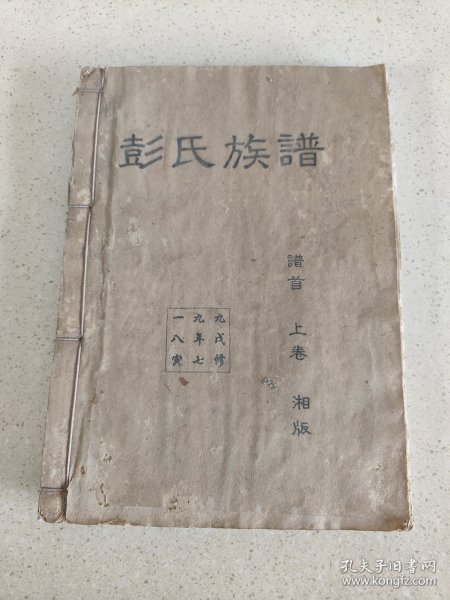 彭氏族譜
譜首 上卷 湘版
一九九
八年戊
寅七修
孔夫子旧书网
www.kongfz.com